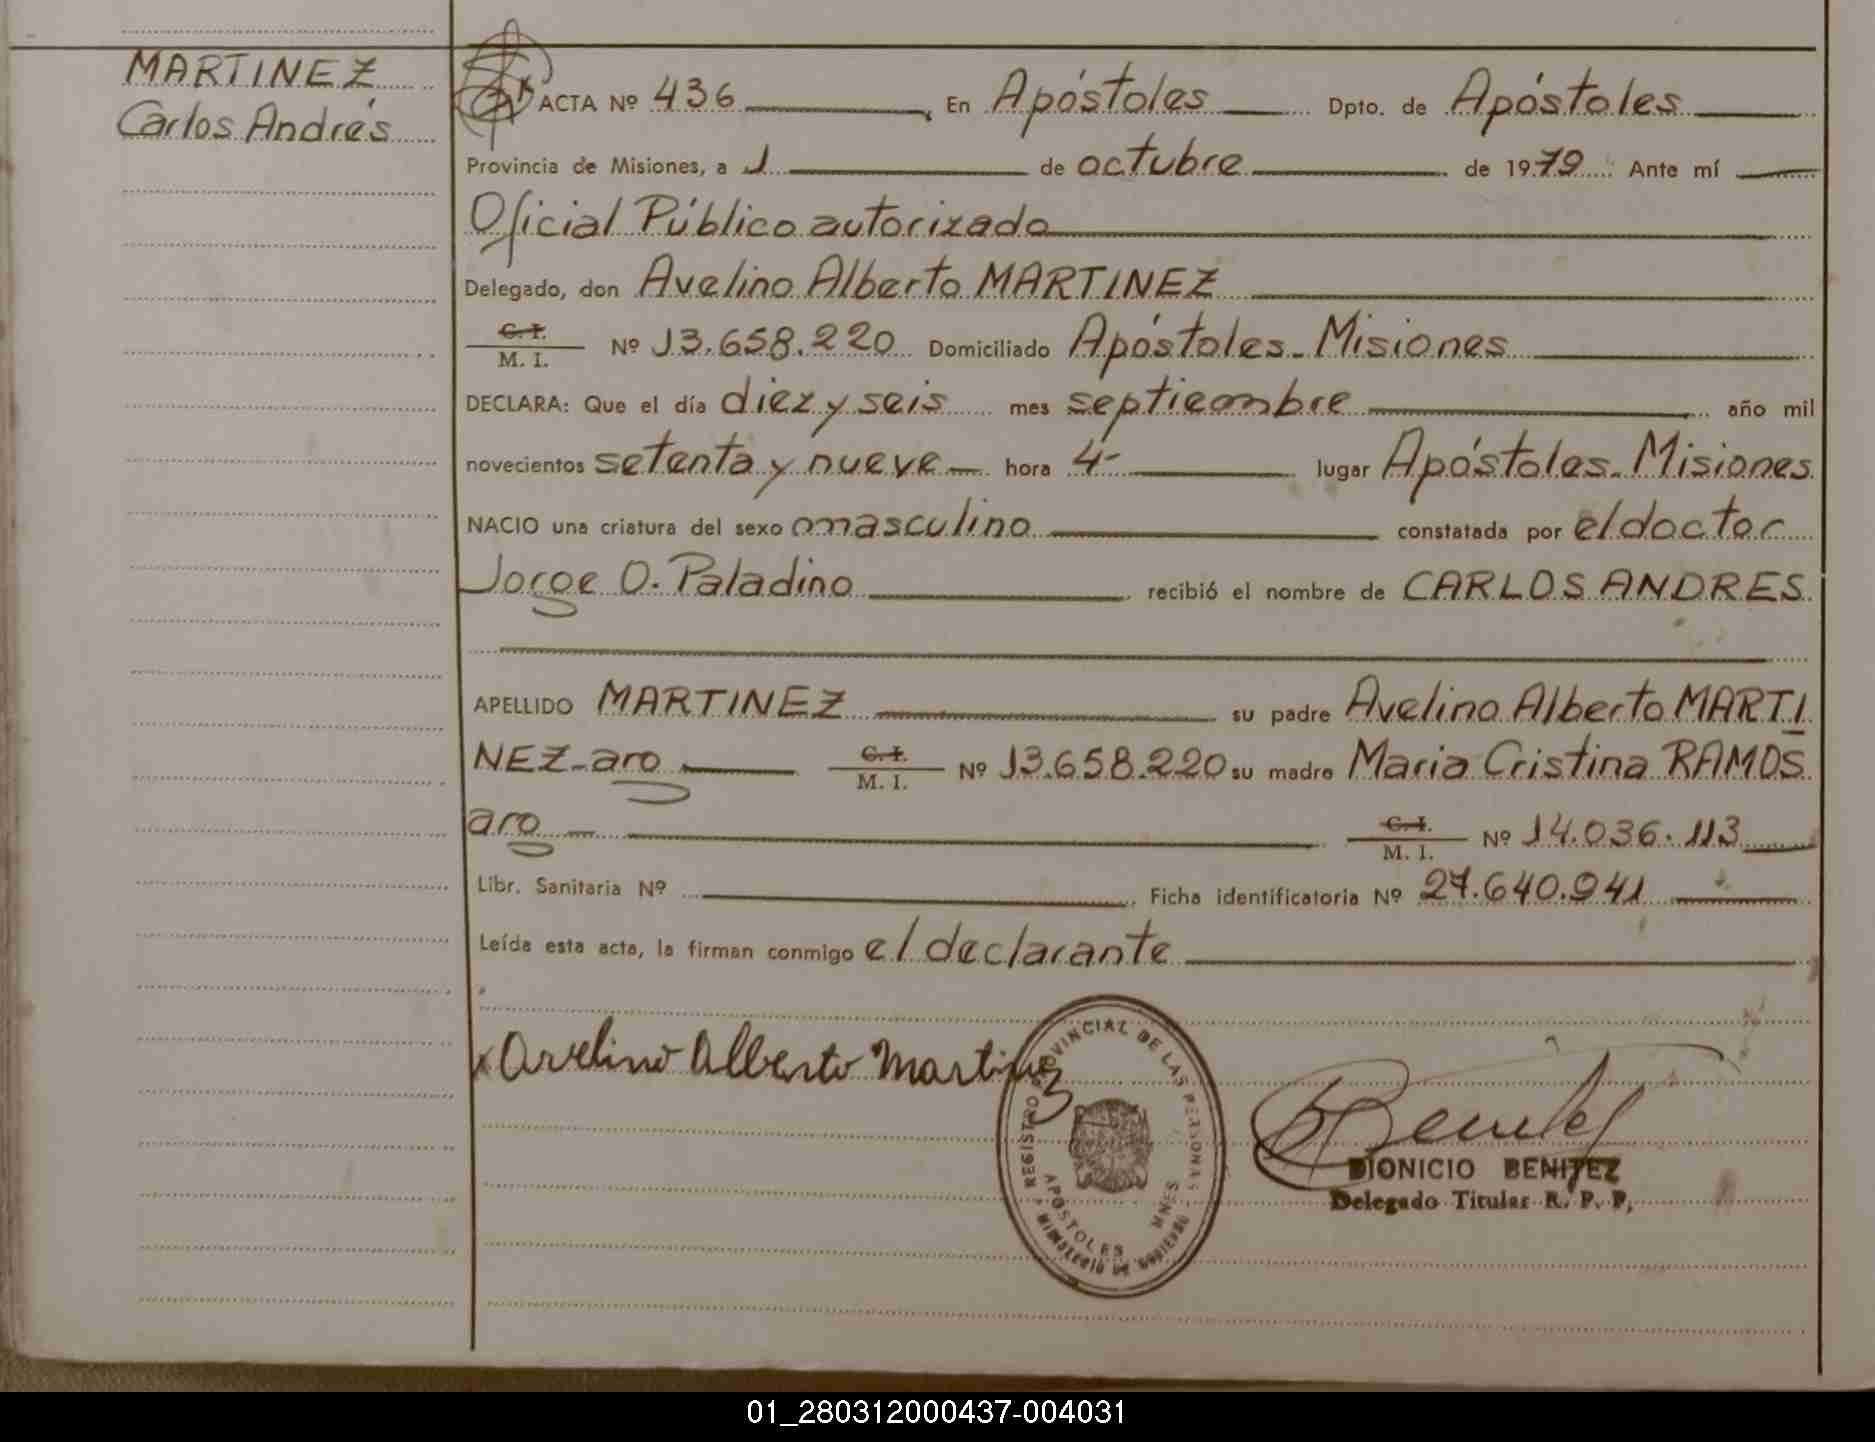 MARTINEZ
Carlos Andrés
ACTA Nº 436, En Apóstoles Dpto. de Apóstoles
Provincia de Misiones, a 1 de octubre de 1979 Ante mí
Oficial Público autorizado
Delegado, don Avelino Alberto MARTINEZ
C. I. M. I. Nº 13.658.220 Domiciliado Apóstoles-Misiones
DECLARA: Que el día diez y seis mes septiembre año mil
novecientos setenta y nueve hora 4- lugar Apóstoles-Misiones
NACIO una criatura del sexo masculino constatada por el doctor
Jorge O. Paladino recibió el nombre de CARLOS ANDRES
APELLIDO MARTINEZ su padre Avelino Alberto MARTI
NEZ-aro C. I. M. I. Nº 13.658.220 su madre Maria Cristina RAMOS
aro C. I. M. I. Nº 14.036.113
Libr. Sanitaria Nº Ficha identificatoria Nº 27.640.941
Leída esta acta, la firman conmigo el declarante
x Avelino Alberto Martinez
REGISTRO PROVINCIAL DE LAS PERSONAS
APOSTOLES MNES
MINISTERIO DE GOBIERNO
Benitez
DIONICIO BENITEZ
Delegado Titular R. P. P.
01_280312000437-004031